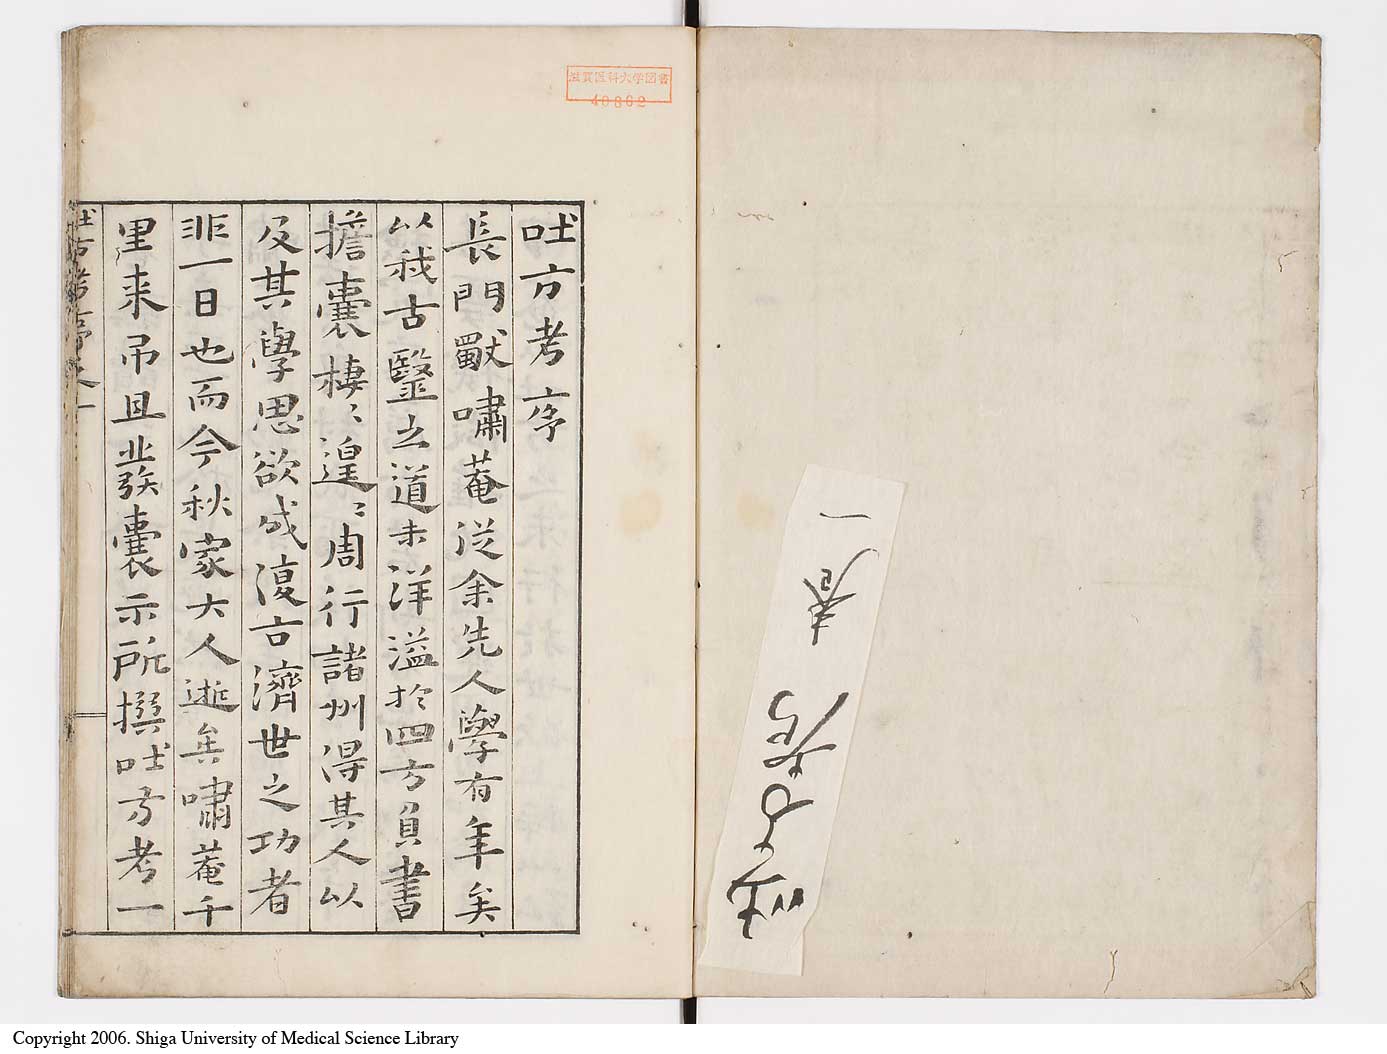 滋賀医科大学図書
40862
吐方考序
長門獸嘯菴從余先人學有年矣
以我古醫之道未洋溢於四方負書
擔囊棲〻遑〻周行諸州得其人以
及其學思欲成復古濟世之功者
非一日也而今秋家大人逝矣嘯菴千
里来吊且發囊示所撰吐方考一
吐方考序之一
吐方考 一
Copyright 2006. Shiga University of Medical Science Library